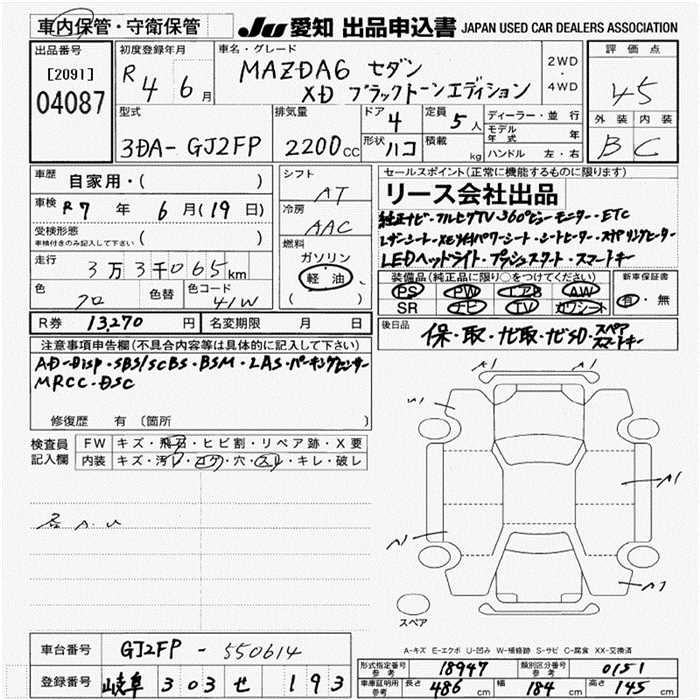 車内保管・守衛保管 JU 愛知 出品申込書 JAPAN USED CAR DEALERS ASSOCIATION
出品番号 初度登録年月 車名・グレード 評価点
[2091] R 4 6月 MAZDA6 セダン 2WD
04087 XD ブラックトーンエディション ・ 4WD 45
型式 排気量 ドア 4 定員 5人 ディーラー・並行 外装 内装
3DA- GJ2FP 2200cc 形状 ハコ 積載 kg モデル年式 年 B C
ハンドル 左・右
車歴 自家用・( ) シフト AT セールスポイント(正常に機能するものに限ります)
車検 R7年 6月(19日) 冷房 AAC リース会社出品
受検形態 車検付きのみ記入して下さい ( ) 純正ナビ・フルセグTV・360°ビューモニター・ETC
燃料 ガソリン 軽油 ( )
走行 3万3千065km LEDヘッドライト・プッシュスタート・スマートキー
色 クロ 色替 色コード 41W 装備品(純正品に限り○をつけてください) 新車保証書
PS PW エアB AW 有・無
SR ナビ TV カワシート
R券 13,270円 名変期限 月 日 後日品 保・取・ナビ取・ナビSD・スペアスマートキー
注意事項申告欄(不具合内容等は具体的に記入して下さい)
AD-Disp・SBS/SCBS・BSM・LAS・パーキングセンサー
MRCC・DSC
修復歴 有(箇所
検査員記入欄 FW キズ・飛石・ヒビ割・リペア跡・X要
内装 キズ・汚れ・コゲ・穴・スレ・キレ・破レ
A1 A1
A1
A1
A1
スペア
A-キズ E-エクボ U-凹み W-補修跡 S-サビ C-腐食 XX-交換済
車台番号 GJ2FP - 550614
登録番号 岐阜 303 せ 193
型式指定番号 参考 18947 類別区分番号 参考 0151
車庫証明用 参考 長さ 486cm 幅 184cm 高さ 145cm